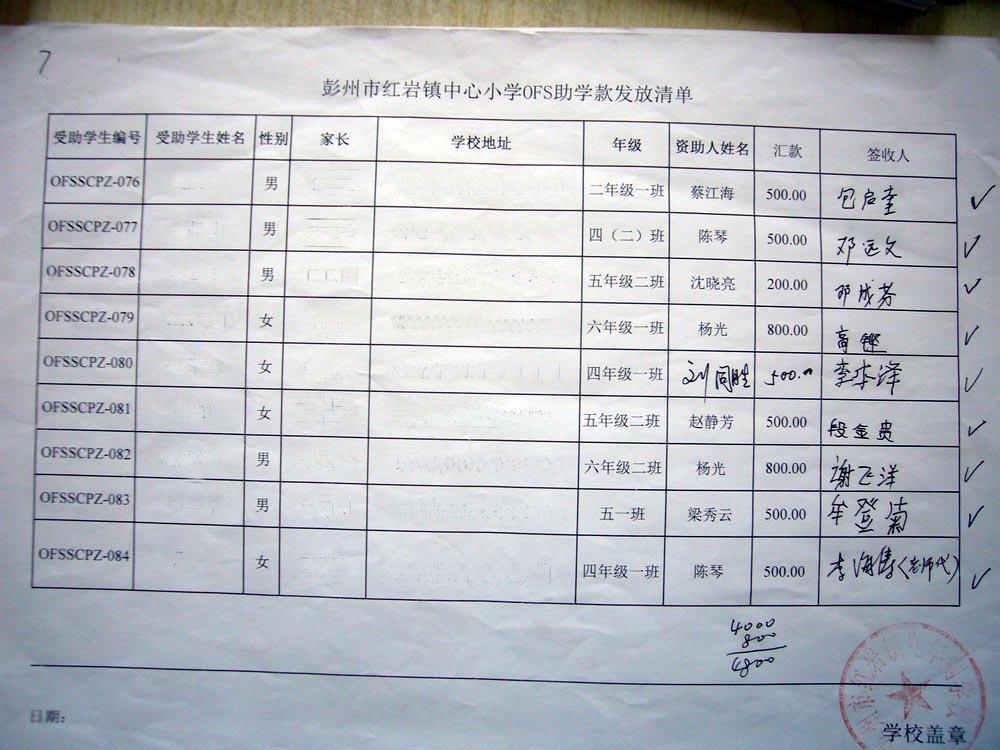 7
彭州市红岩镇中心小学OFS助学款发放清单
受助学生编号 受助学生姓名 性别 家长 学校地址 年级 资助人姓名 汇款 签收人
OFSSCPZ-076 男 二年级一班 蔡江海 500.00 包启奎
OFSSCPZ-077 男 四（二）班 陈琴 500.00 邓远文
OFSSCPZ-078 男 五年级二班 沈晓亮 200.00 邓成芳
OFSSCPZ-079 女 六年级一班 杨光 800.00 高铿
OFSSCPZ-080 女 四年级一班 刘同胜 500.00 李本泽
OFSSCPZ-081 女 五年级二班 赵静芳 500.00 段金贵
OFSSCPZ-082 男 六年级二班 杨光 800.00 谢飞洋
OFSSCPZ-083 男 五一班 梁秀云 500.00 牟登菊
OFSSCPZ-084 女 四年级一班 陈琴 500.00 李海(老师代)
4000
800
4800
日期：
学校盖章